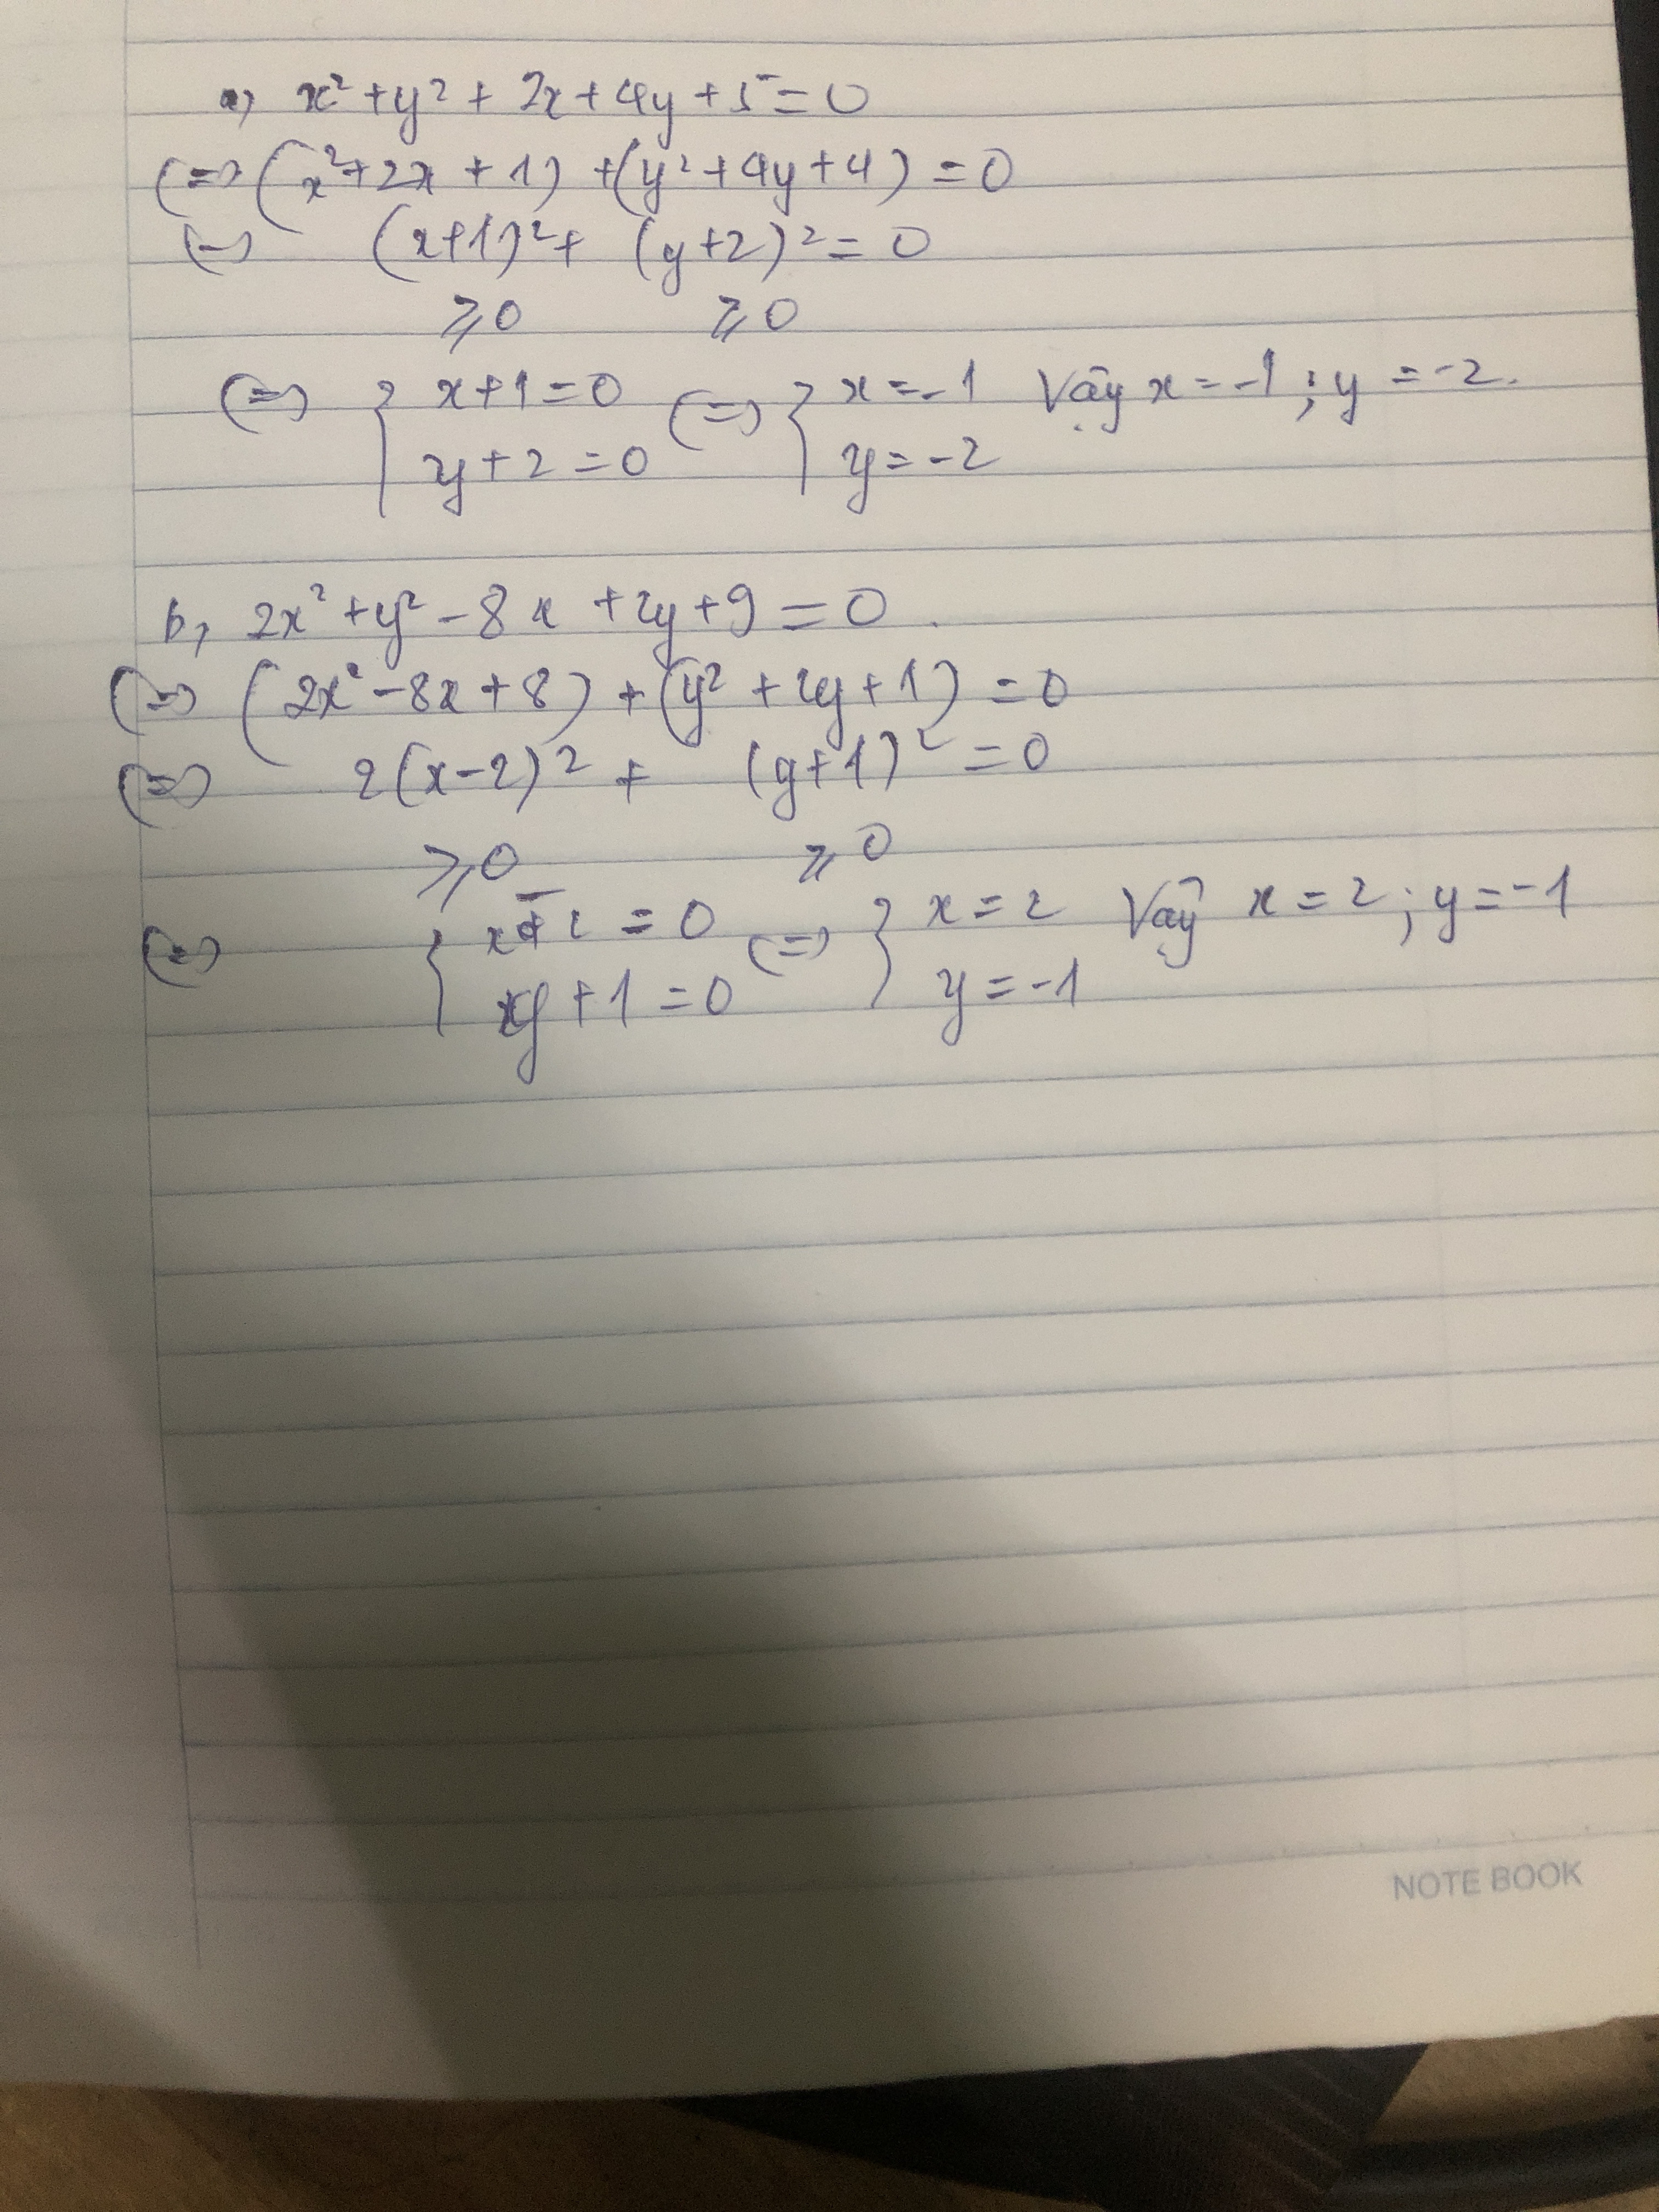 a, x² + y² + 2x + 4y + 5 = 0
(=) (x² + 2x + 1) + (y² + 4y + 4) = 0
(=) (x+1)² + (y+2)² = 0
⩾0 ⩾0
(=) { x+1=0 (=) { x=-1 Vậy x=-1; y=-2.
y+2=0 y=-2
b, 2x² + y² - 8x + 2y + 9 = 0.
(=) (2x² - 8x + 8) + (y² + 2y + 1) = 0
(=) 2(x-2)² + (y+1)² = 0
⩾0 ⩾0
(=) { x-2=0 (=) { x=2 Vậy x=2; y=-1
y+1=0 y=-1
NOTE BOOK